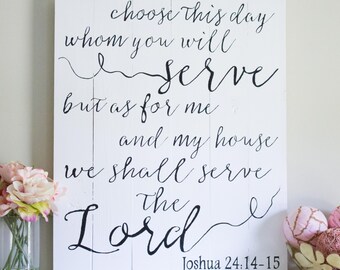 choose this day
whom you will
serve
but as for me
and my house
we shall serve
the
Lord
Joshua 24:14-15